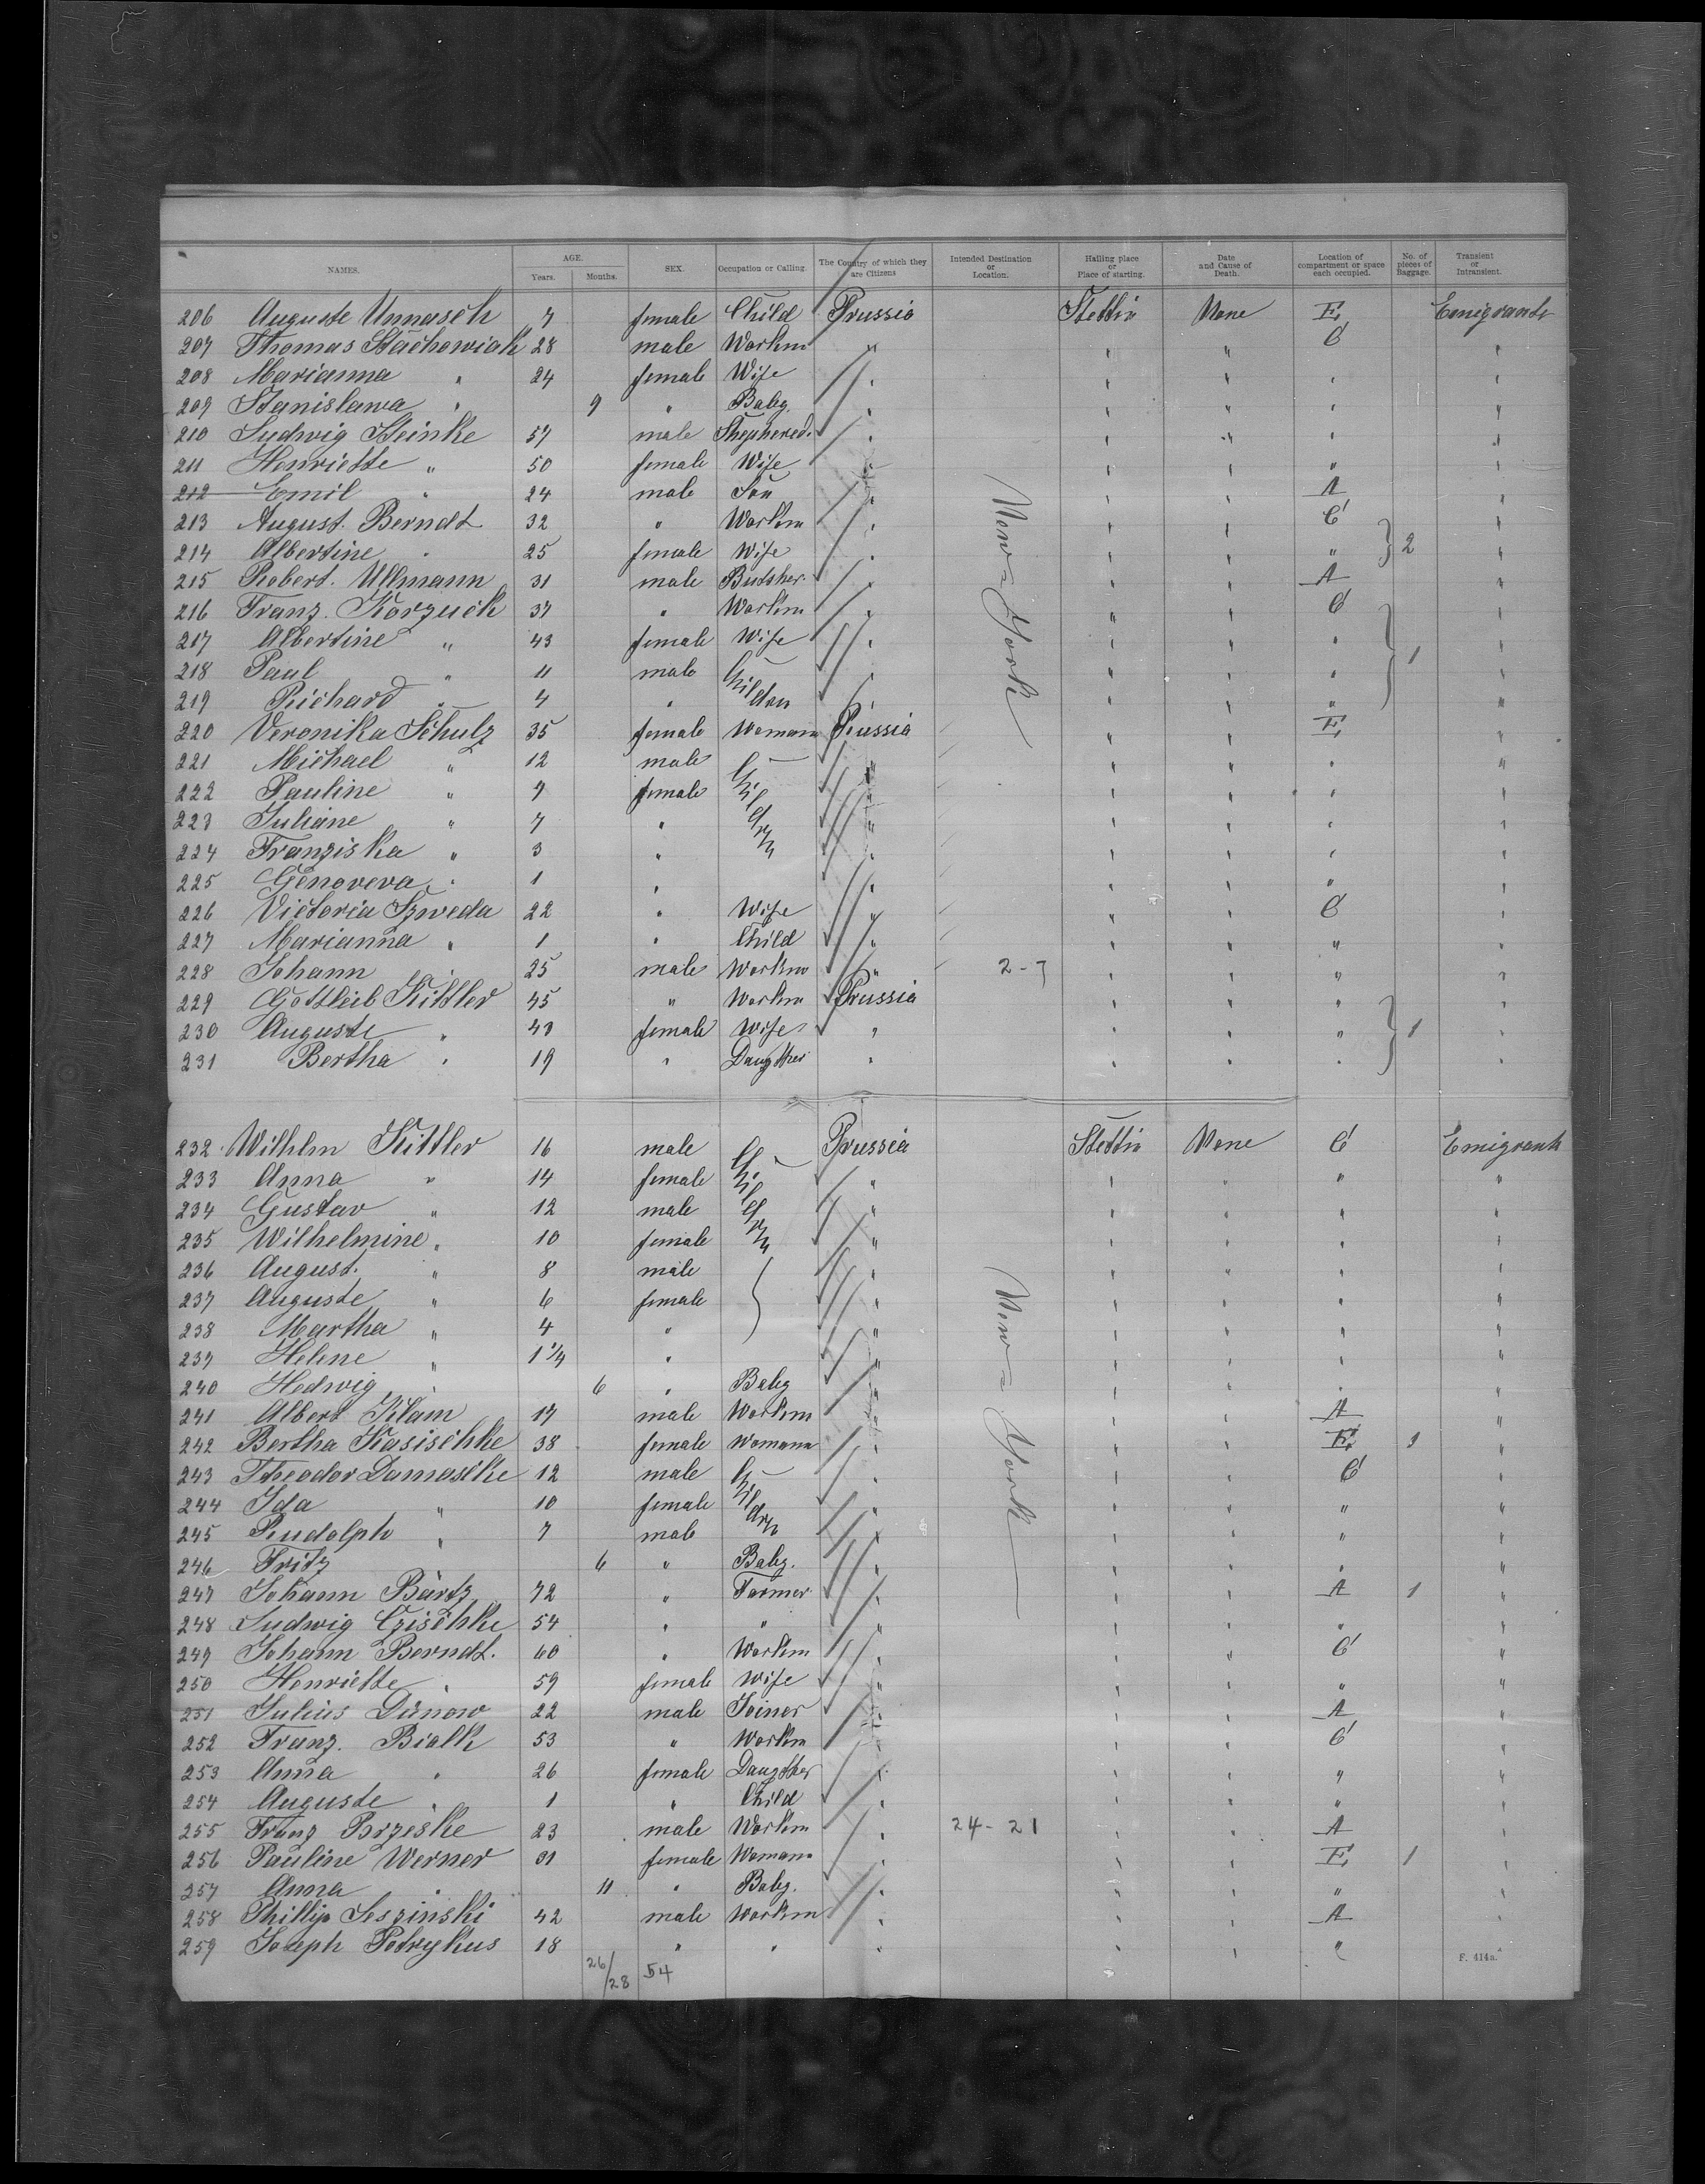 NAMES. AGE. Years. Months. SEX. Occupation or Calling. The Country of which they are Citizens Intended Destination or Location. Hailing place or Place of starting. Date and Cause of Death. Location of compartment or space each occupied. No. of pieces of Baggage. Transient or Intransient.
206 Auguste Unnasch 7 female Child Prussia Stettin None E, Emigrants
207 Thomas Stachowiak 28 male Workm " " " C "
208 Marianna " 24 female Wife " " " " "
209 Stanislawa " 9 " Baby. " " " " "
210 Ludwig Steinke 57 male Shephered. " " " " "
211 Henriette " 50 female Wife " " " " "
212 Emil " 24 male Son " " " A "
213 August. Berndt 32 " Workm " " " C "
214 Albertine " 25 female Wife " " " " 2 "
215 Robert. Ullmann 31 male Butsher. " " " A "
216 Franz. Korzuch 37 " Workm " " " C "
217 Albertine " 43 female Wife " New-York " " " "
218 Paul " 11 male Children " " " " 1 "
219 Richard " 4 " " " " " "
220 Veronika Schulz 35 female Womann Prussia " " E, "
221 Michael " 12 male Children " " " " "
222 Pauline " 9 female " " " " "
223 Juliane " 7 " " " " " "
224 Franziska " 3 " " " " " "
225 Genoveva " 1 " " " " " "
226 Victoria Szweda 22 " Wife " " " C "
227 Marianna " 1 " Child " " " " "
228 Johann " 25 male Workm " " " " "
229 Gottleib Kittler 45 " Workm Prussia " " " "
230 Auguste " 43 female Wife " " " " 1 "
231 Bertha " 19 " Daugther " " " " "
232 Wilhlm Kittler 16 male Children Prussia Stettin None C Emigrants
233 Anna " 14 female " " " " "
234 Gustav " 12 male " " " " "
235 Wilhelmine " 10 female " " " " "
236 August. " 8 male " " " " "
237 Auguste " 6 female " " " " "
238 Martha " 4 " " " " " "
239 Helene " 1 1/4 " " " " " "
240 Hedwig " 6 " Baby " " " " "
241 Albert Klam 17 male Workm " New-York " " A "
242 Bertha Kasischke 38 female Womann " " " E, 1 "
243 Theodor Damaschke 12 male Children " " " C "
244 Ida " 10 female " " " " "
245 Rudolph " 7 male " " " " "
246 Fritz 6 " Baby. " " " " "
247 Johann Bärtz 72 " Farmer " " " A 1 "
248 Ludwig Czischke 54 " " " " " " "
249 Johann Berndt. 60 " Workm " " " C "
250 Henriette " 59 female Wife " " " " "
251 Julius Dünow 22 male Joiner " " " A "
252 Franz. Bialk 53 " Workm " " " C "
253 Anna " 26 female Daugther " " " " "
254 Auguste " 1 " Child " " " " "
255 Franz Brzeske 23 male Workm " 24-21 " " A "
256 Pauline Werner 31 female Womann " " " E, 1 "
257 Anna " 11 " Baby. " " " " "
258 Phillip 42 male Workm " " " A "
259 Joseph Potrykus 18 " " " " " " "
26/28 54 F. 414a.